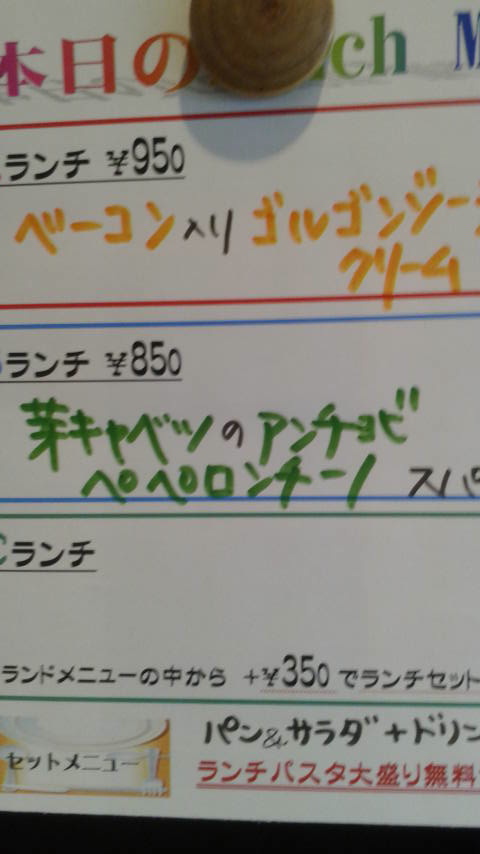 本日の ch M
ランチ ¥950
ベーコン入り ゴルゴンゾー
クリーム
ランチ ¥850
芽キャベツのアンチョビ
ペペロンチーノ スパ
Cランチ
ランドメニューの中から +¥350 でランチセット
パン&サラダ+ドリン
セットメニュー
ランチパスタ大盛り無料